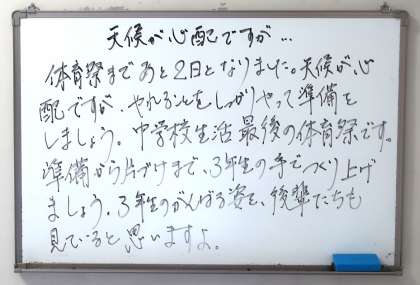 天候が心配ですが…
体育祭まであと2日となりました。天候が心
配ですが、やれることをしっかりやって準備を
しましょう。中学校生活最後の体育祭です。
準備から片づけまで、3年生の手でつくり上げ
ましょう。3年生のがんばる姿を、後輩たちも
見ていると思いますよ。